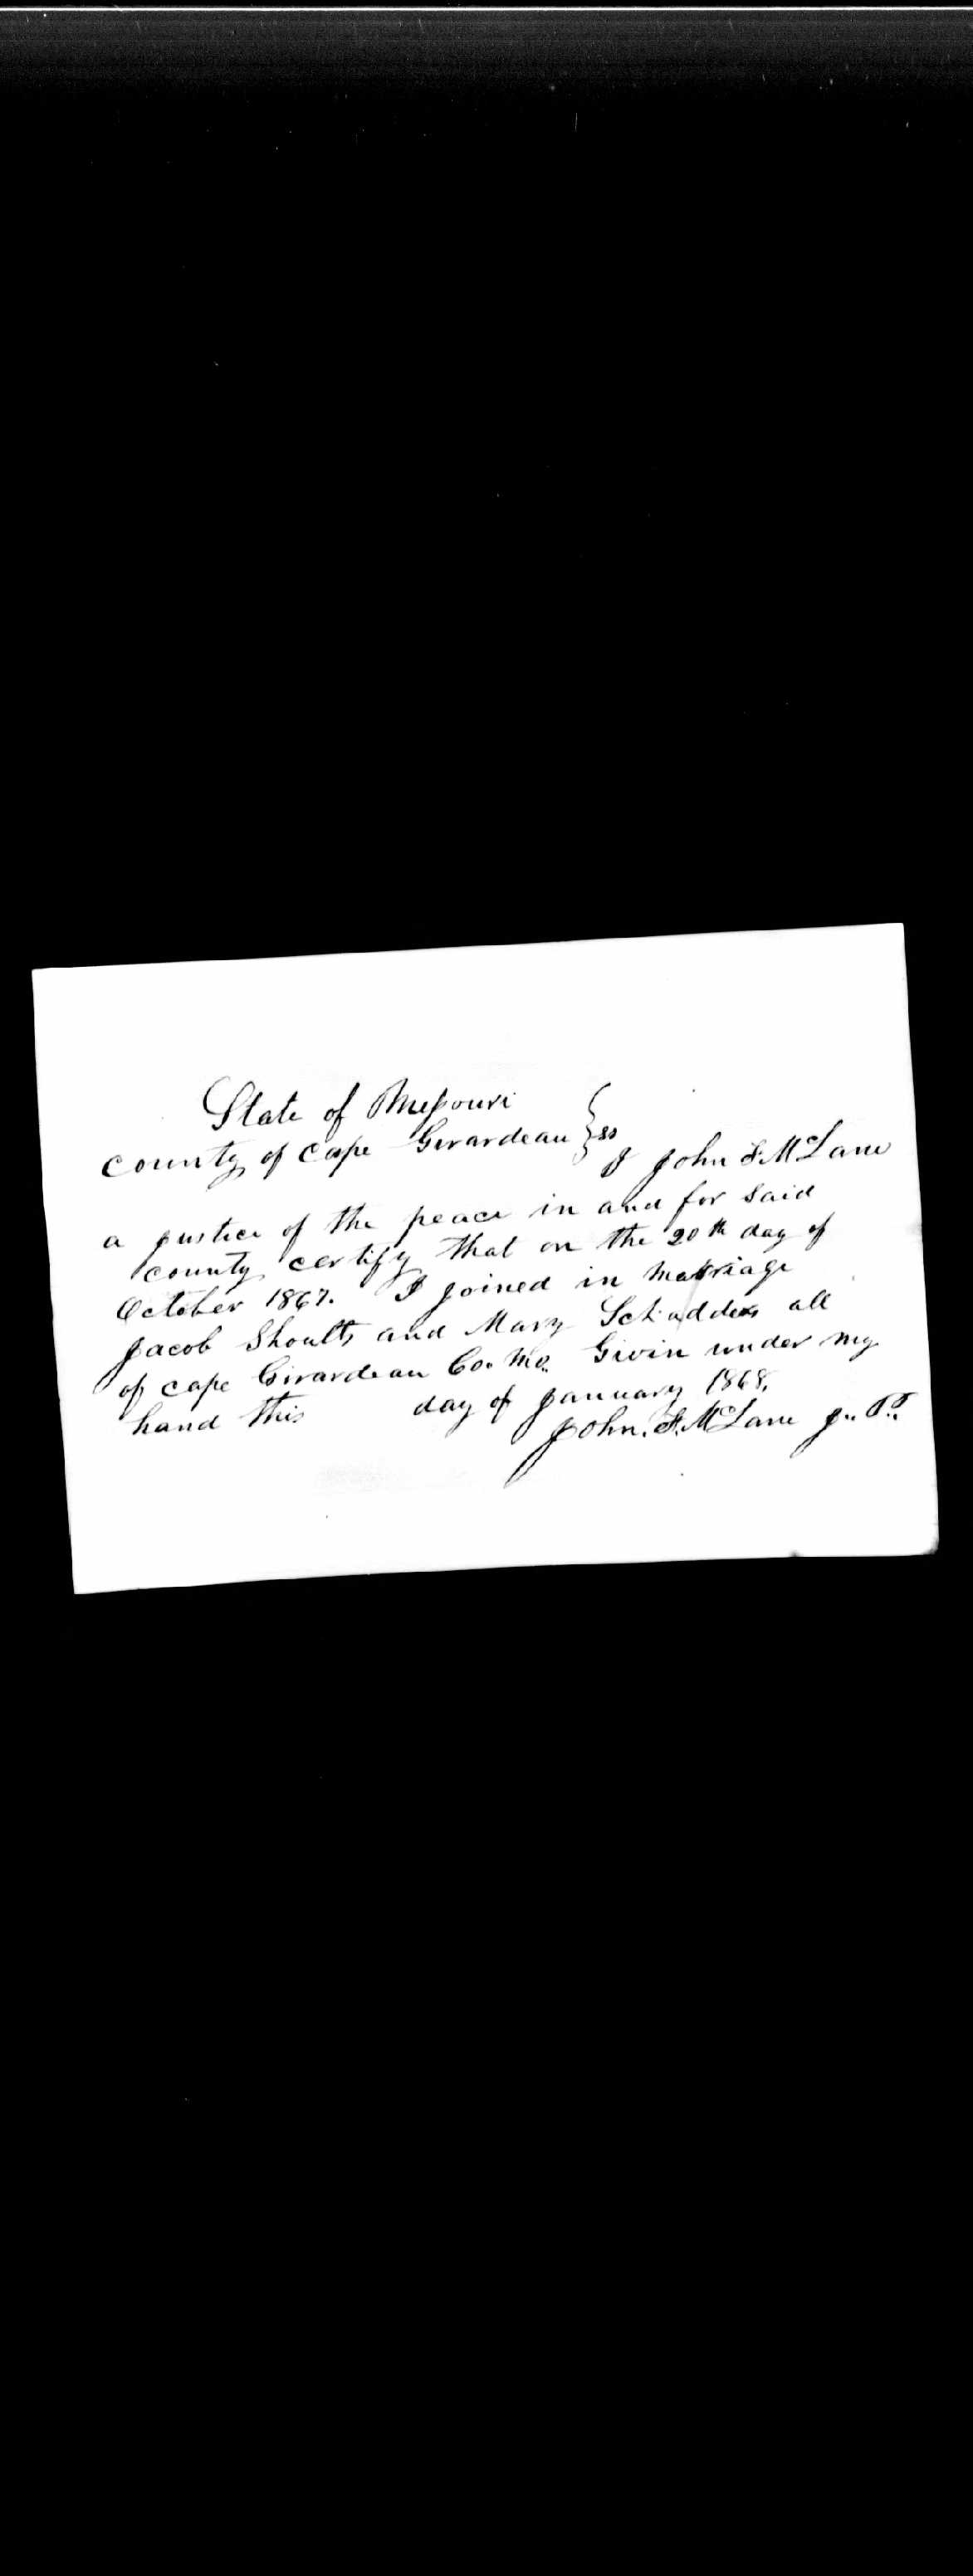 State of Missouri
County of Cape Girardeau } ss
I John F. McLane
a justice of the peace in and for said
county certify that on the 20th day of
October 1867. I joined in marriage
Jacob Shoults and Mary all
of Cape Girardeau Co. Mo. Givin under my
hand this day of January 1868.
John. F. McLane J.. P..